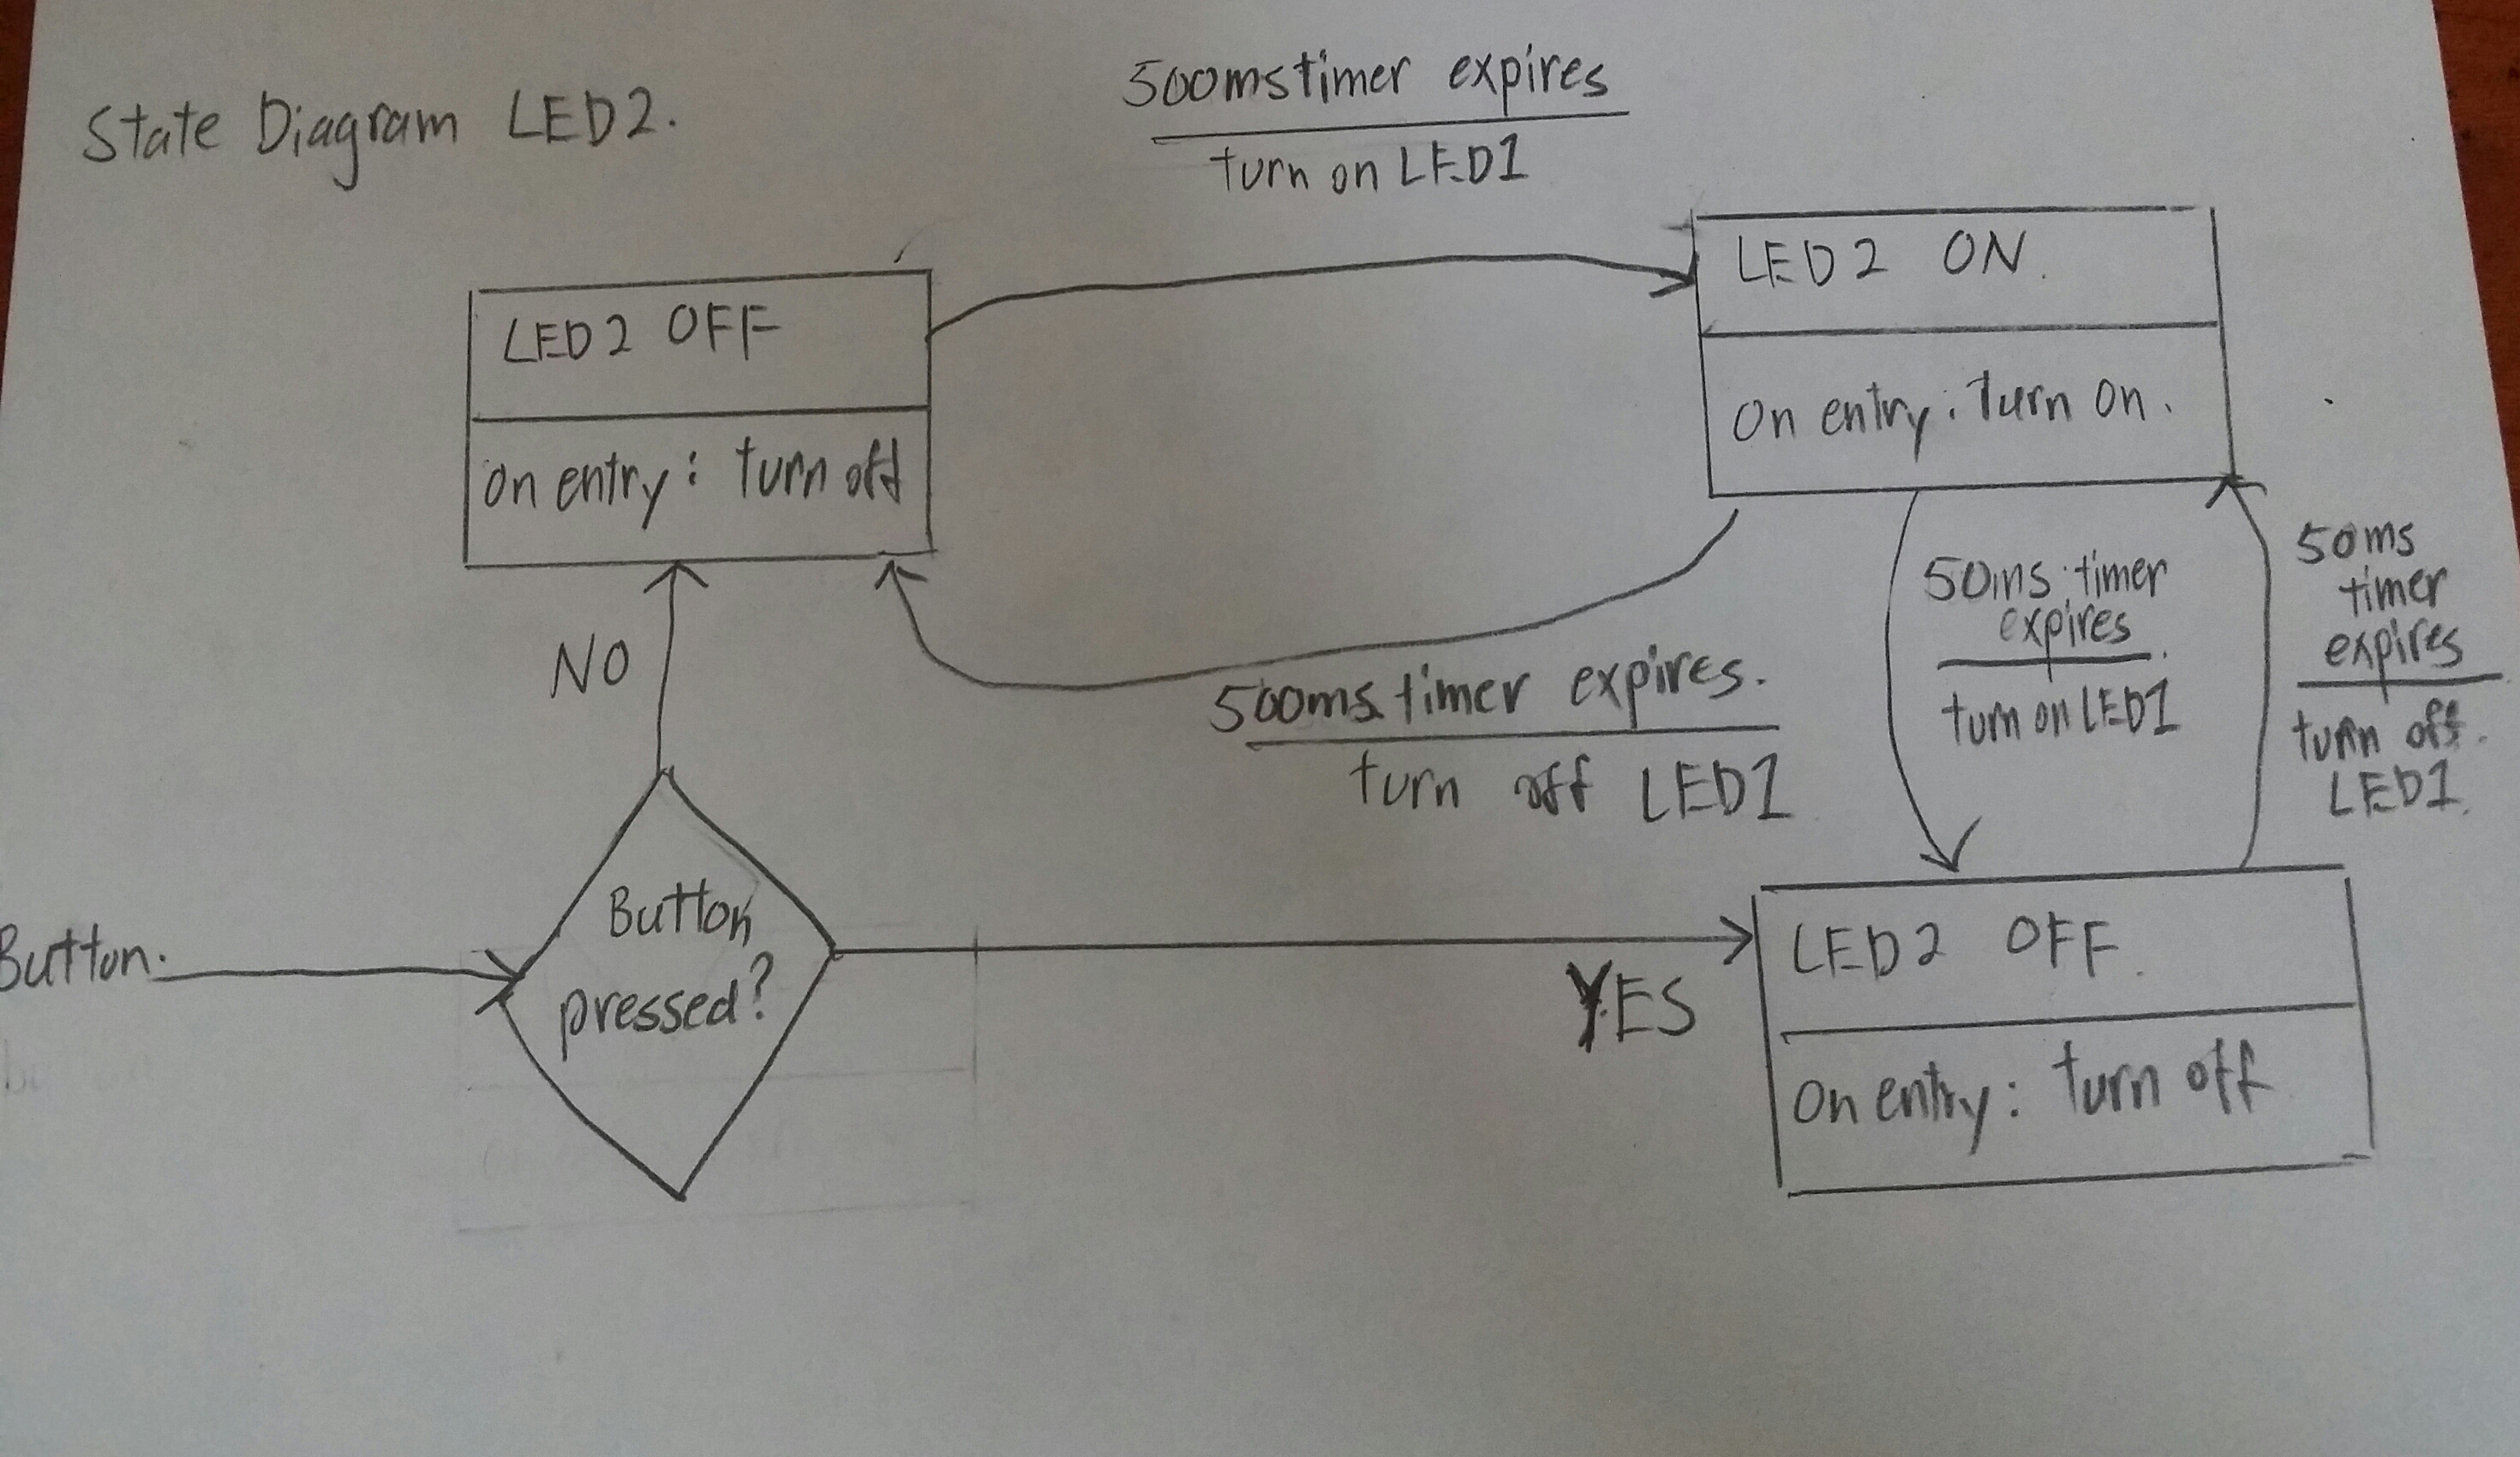 State Diagram LED2.
500ms timer expires
turn on LED1
LED2 OFF
on entry: turn off
LED2 ON.
on entry: Turn on.
NO
500ms timer expires.
turn off LED1
50ms timer
expires
turn on LED1
50ms
timer
expires
turn off.
LED1.
Button.
Button
pressed?
YES
LED2 OFF.
on entry: turn off